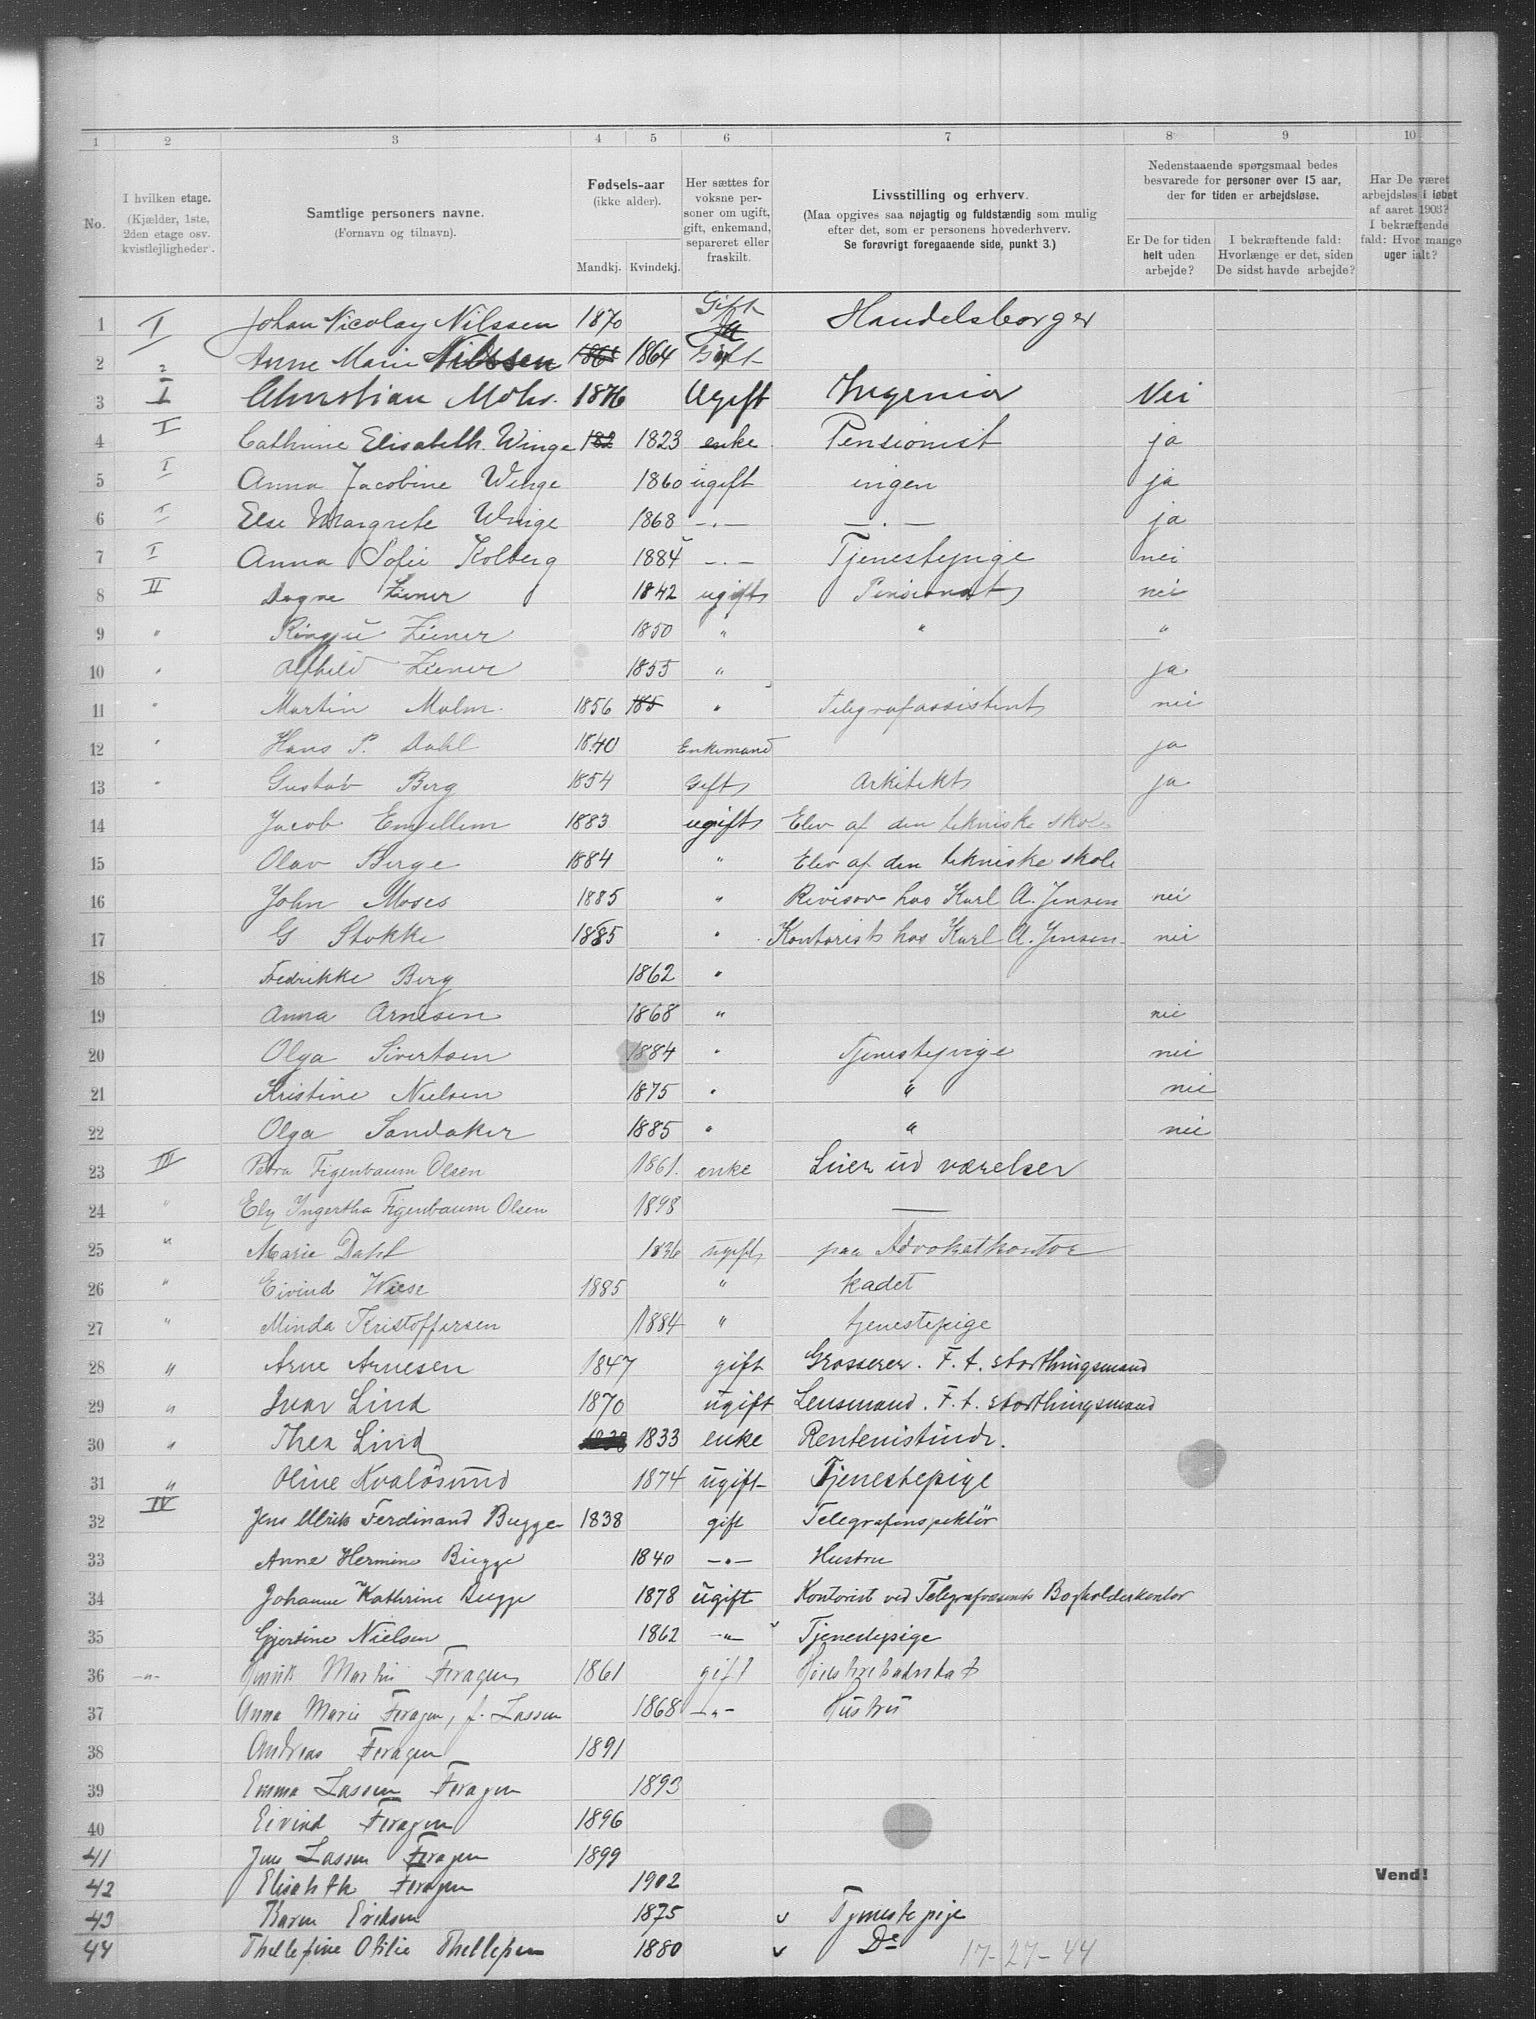 1 2 3 4 5 6 7 8 9 10
No.
I hvilken etage.
(Kjælder, 1ste,
2den etage osv.
kvistlejligheder.)
Samtlige personers navne.
(Fornavn og tilnavn).
Fødsels-aar
(ikke alder).
Mandkj. Kvindekj.
Her sættes for
voksne per-
soner om ugift,
gift, enkemand,
separeret eller
fraskilt.
Livsstilling og erhverv.
(Maa opgives saa nøjagtig og fuldstændig som mulig
efter det, som er personens hovederhverv.
Se forøvrigt foregaaende side, punkt 3.)
Nedenstaaende spørgsmaal bedes
besvarede for personer over 15 aar,
der for tiden er arbejdsløse.
Er De for tiden
helt uden
arbejde?
I bekræftende fald:
Hvorlænge er det, siden
De sidst havde arbejde?
Har De været
arbejdsløs i løbet
af aaret 1903?
I bekræftende
fald: Hvor mange
uger ialt?
1 I Johan Nicolay Nilssen 1870 Gift Handelsborger
2 Anne Marie Nilssen 1864 Gift
3 I Christian Mohr 1876 Ugift Ingeniør Nei
4 I Cathrine Elisabeth Winge 182 1823 enke Pensionist ja
5 I Anna Jacobine Winge 1860 ugift ingen ja
6 I Else Margrete Winge 1868 -.- -.- ja
7 I Anna Sofie Kolberg 1884 -.- Tjenestepige nei
8 II Dagne Ziener 1842 ugift nei
9 " Ziener 1850 " " "
10 " Alfhild Ziener 1855 " ja
11 " Martin Malm 1856 185 " Telegrafassistent nei
12 " Hans P. Dahl 1840 Enkemand ja
13 " Gustav Berg 1854 Gift Arkitekt ja
14 Jacob Engellem 1883 ugift Elev af den tekniske skole
15 Olav Berge 1884 " Elev af den tekniske skole
16 John Moses 1885 " Revisor hos Karl A. Jensen nei
17 G Stokke 1885 " Kontorist hos Karl A. Jensen nei
18 Fedrikke Berg 1862 "
19 Anna Arnesen 1868 " nei
20 Olga Sivertsen 1884 " Tjenestepige nei
21 Kristine Nielsen 1875 " " nei
22 Olga Sandaker 1885 " " nei
23 III Petra Figenbaum Olsen 1861. enke Leier ud værelser
24 " Ely Ingertha Figenbaum Olsen 1898 —
25 " Marie Dahl 1836 ugift paa Advokatkontor
26 " Eivind Wiese 1885 " kadet
27 " Minda Kristoffersen 1884 " tjenestepige
28 " Arne Arnesen 1847 gift Grosserer. F. t. storthingsmand
29 " Ivar Lind 1870 ugift Lensmand. F. t. storthingsmand
30 " Thea Lind 1833 enke Rentenistinde.
31 " Oline Kvaløsund 1874 ugift Tjenestepige
32 IV Jens Ulrik Ferdinand Bugge 1838 gift Telegrafinspektør
33 Anne Hermine Bugge 1840 -"- Hustru
34 Johanne Kathrine Bugge 1878 ugift Kontorist ved Telegrafvæsenets Bogholderkontor
35 Gjertine Nielsen 1862 -"- Tjenestepige
36 -"- Henrik Martin Feragen 1861 gift
37 Anna Marie Feragen, f. Lassen 1868 -"- Hustru
38 Andreas Feragen 1891
39 Emma Lassen Feragen 1893
40 Eivind Feragen 1896
41 Jens Lassen Feragen 1899
42 Elisabeth Feragen 1902
Vend!
43 Karen Eriksen 1875 v Tjenestepige
44 Otilie Thellefsen 1880 v Do 17-27-44